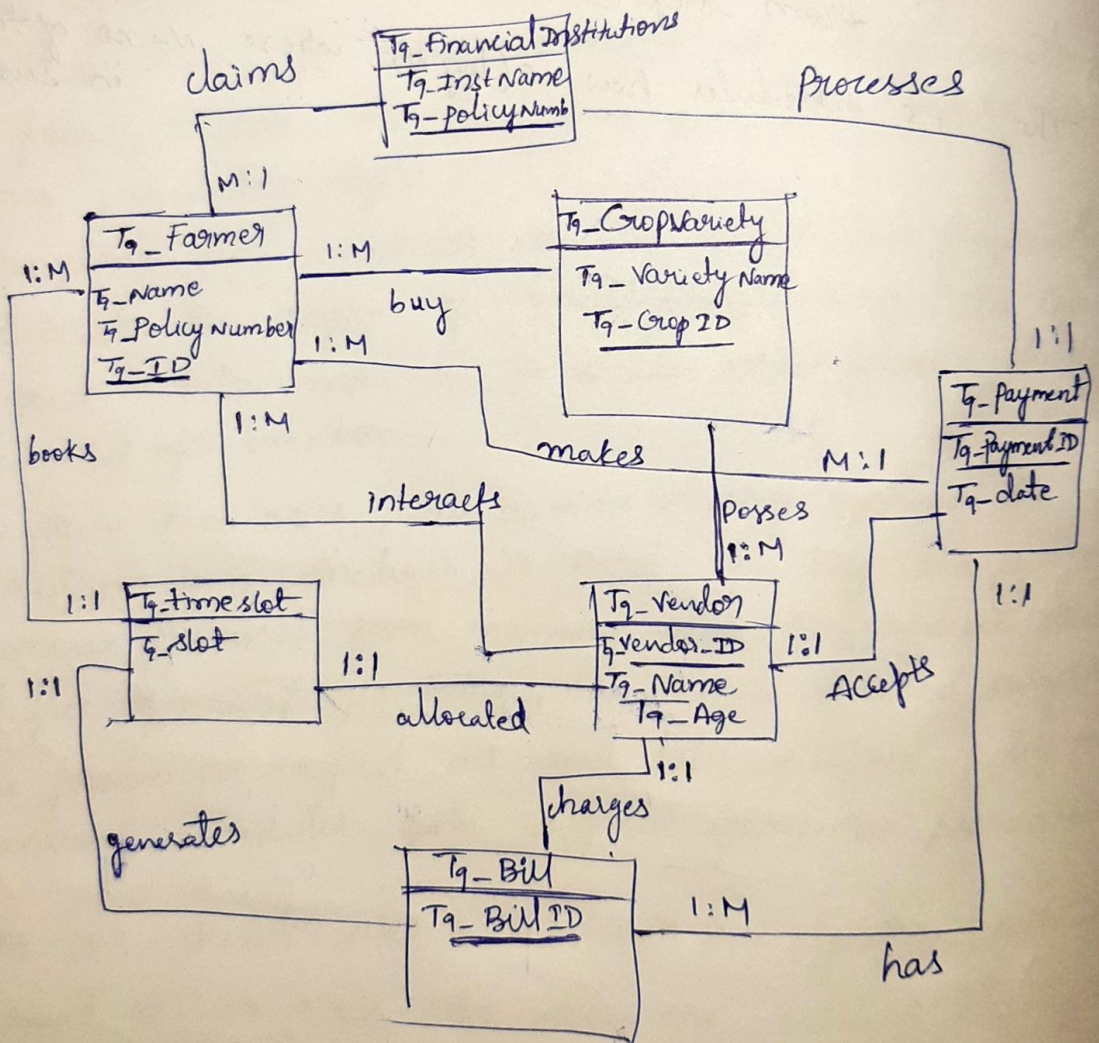 Tq_Financial Institutions
Tq_Inst Name
Tq_policy Numb
claims
Processes
M:1
Tq_Farmer
Tq_Name
Tq_Policy Number
Tq_ID
1:M
1:M
buy
1:M
Tq_CropVariety
Tq_Variety Name
Tq_Crop ID
1:1
Tq_Payment
Tq_Payment ID
Tq_date
1:M
books
makes
M:1
interacts
Posses
1:M
1:1
1:1
Tq_timeslot
Tq_slot
1:1
Tq_Vendor
Tq_vendor_ID
Tq_Name
Tq_Age
1:1
Accepts
1:1
allocated
1:1
charges
generates
Tq_Bill
Tq_Bill ID
1:M
has